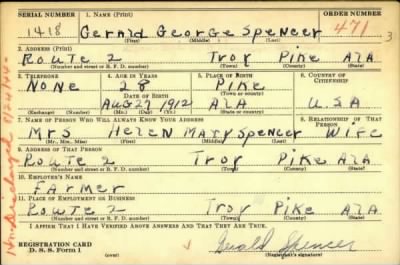 SERIAL NUMBER 1. NAME (Print) ORDER NUMBER
1418 Gerald George Spencer 471
(First) (Middle) (Last)
3
2. ADDRESS (Print)
Route 2 Troy Pike Ala
(Number and street or R. F. D. number) (Town) (County) (State)
3. TELEPHONE 4. AGE IN YEARS 5. PLACE OF BIRTH 6. COUNTRY OF CITIZENSHIP
None 28 Pike
DATE OF BIRTH (Town or county)
Aug 27 1912 Ala U.S.A
(Exchange) (Number) (Mo.) (Day) (Yr.) (State or country)
7. NAME OF PERSON WHO WILL ALWAYS KNOW YOUR ADDRESS 8. RELATIONSHIP OF THAT PERSON
Mrs Helen Mary Spencer Wife
(Mr., Mrs., Miss) (First) (Middle) (Last)
9. ADDRESS OF THAT PERSON
Route 2 Troy Pike Ala
(Number and street or R. F. D. number) (Town) (County) (State)
10. EMPLOYER'S NAME
Farmer
11. PLACE OF EMPLOYMENT OR BUSINESS
Route 2 Troy Pike Ala
(Number and street or R. F. D. number) (Town) (County) (State)
I AFFIRM THAT I HAVE VERIFIED ABOVE ANSWERS AND THAT THEY ARE TRUE.
REGISTRATION CARD
D. S. S. Form 1 (over) Gerald Spencer
(Registrant's signature)
Discharged